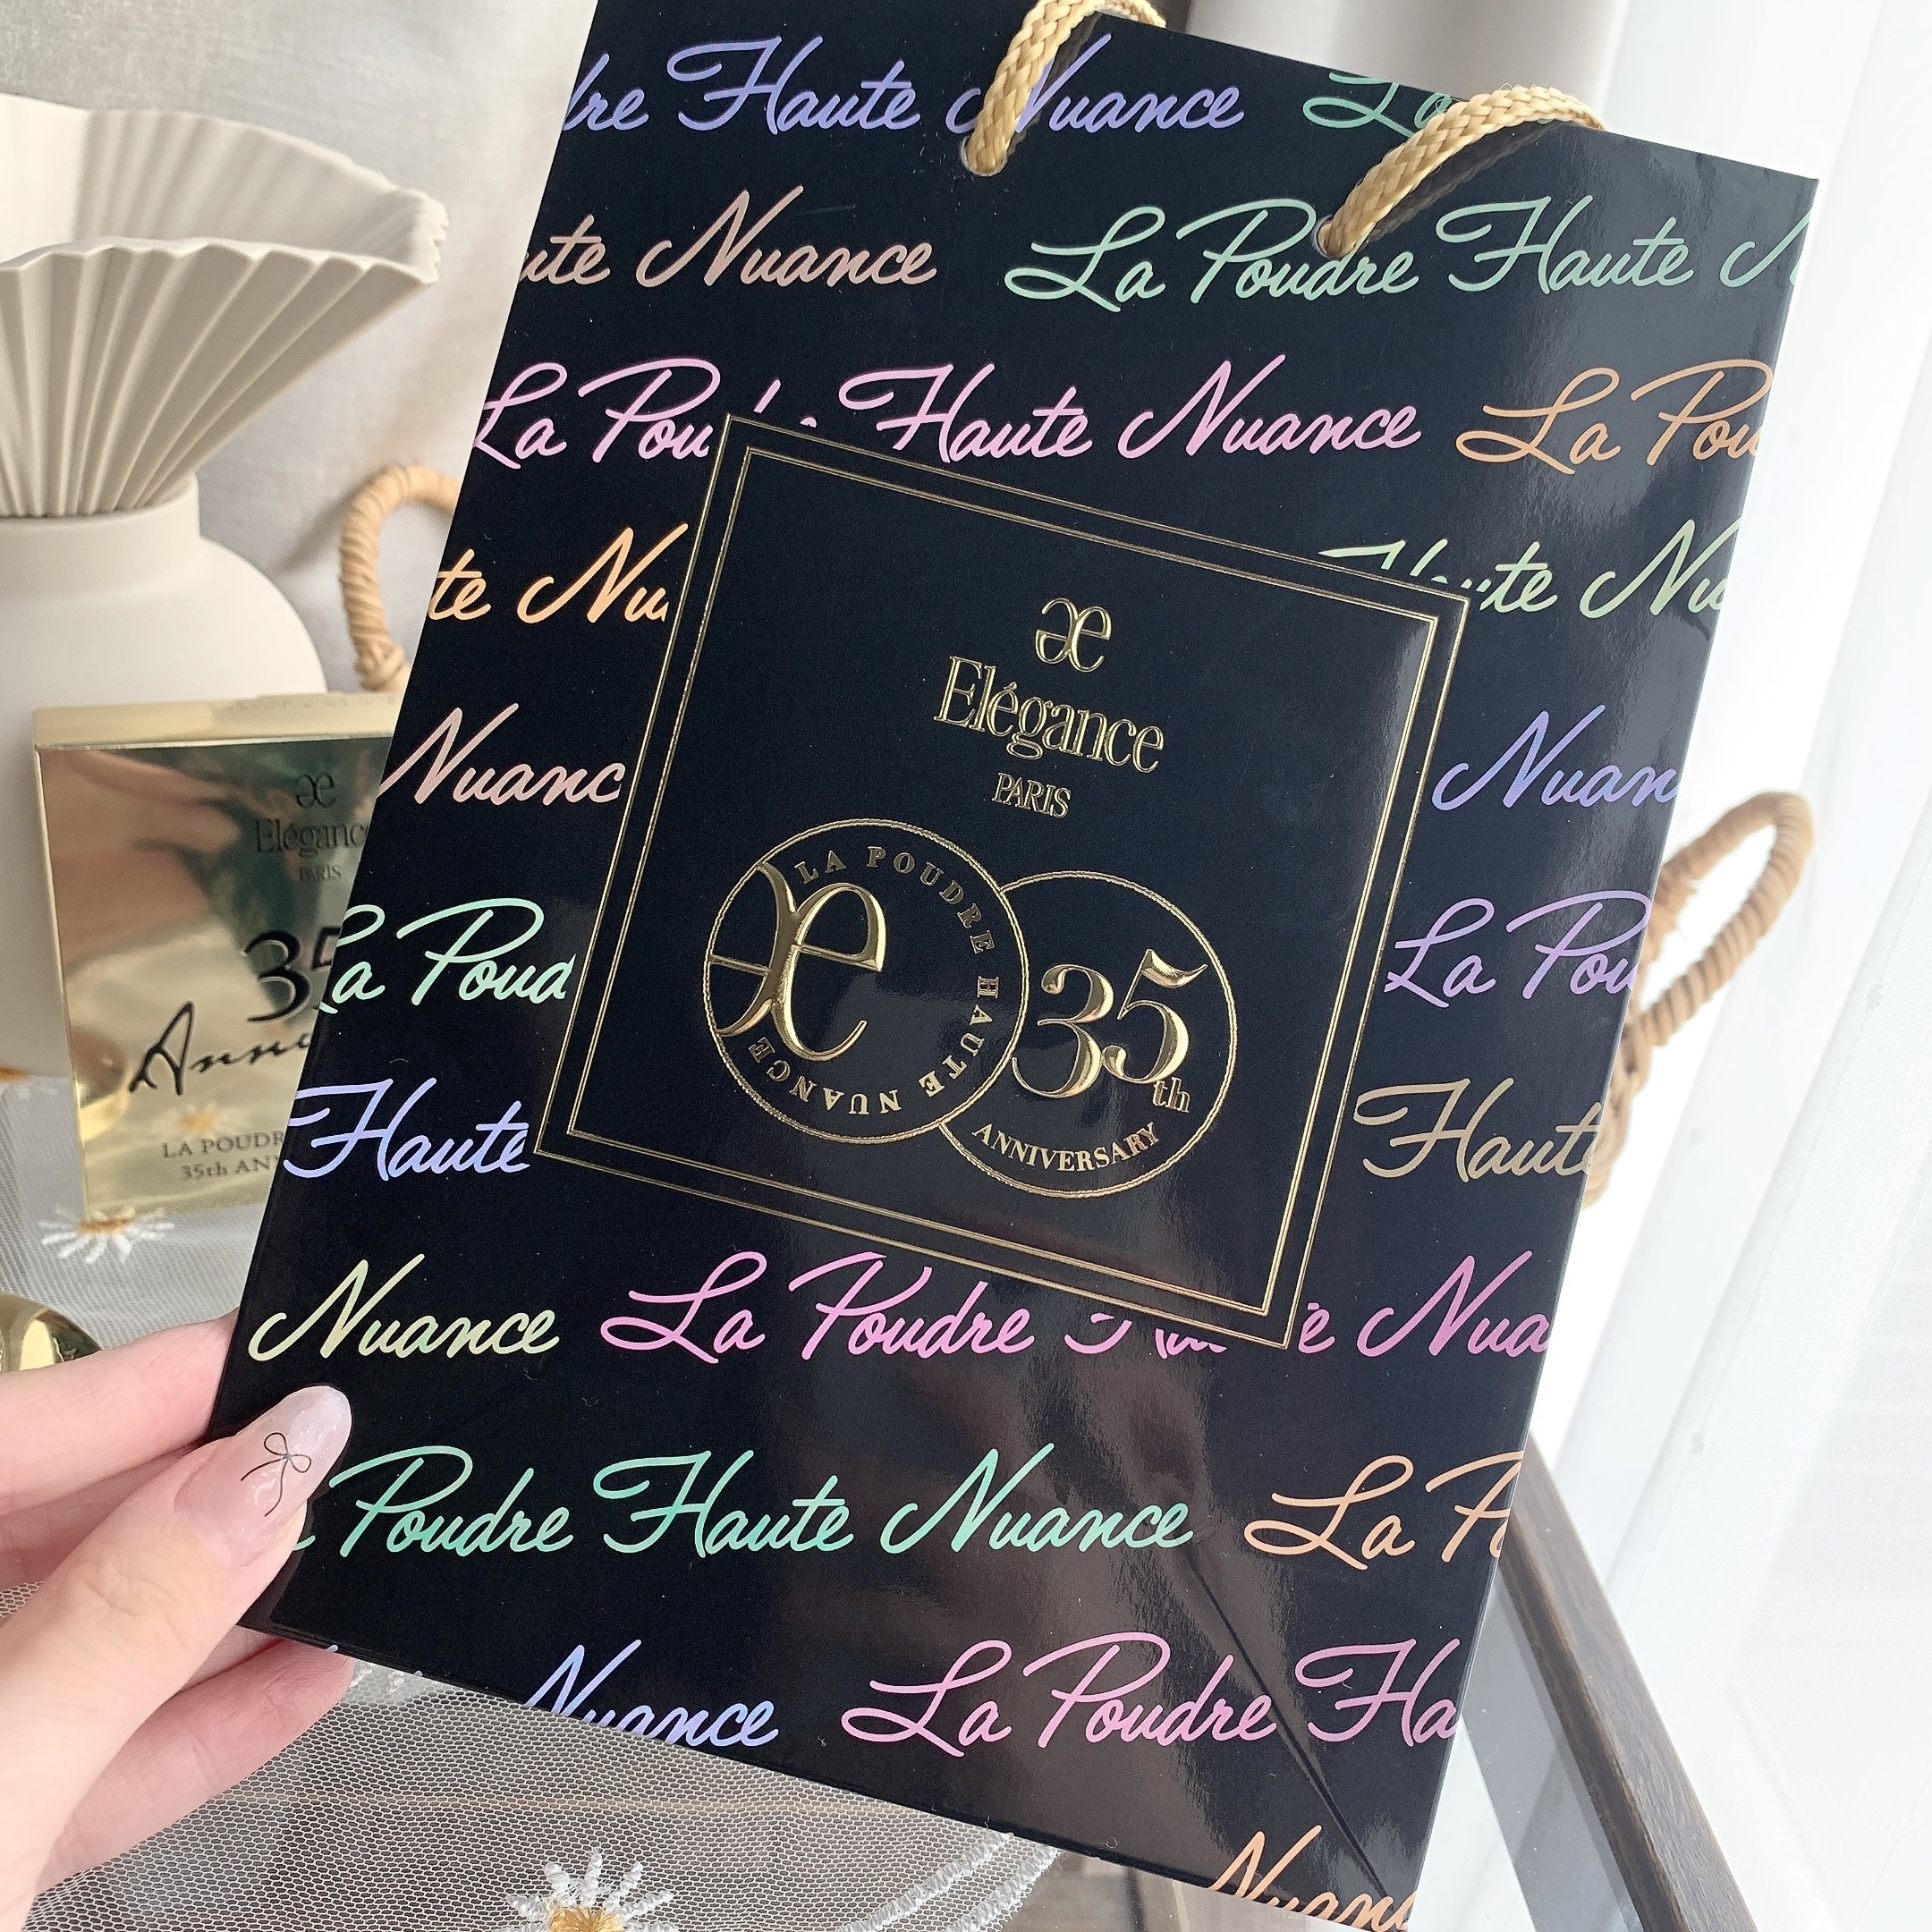 dre Haute Nuance La
ute Nuance La Poudre Haute N
La Pou Haute Nuance La Pou
te Nu
te Nu
Nuanc
Nuan
La Poud
La Pou
Haute
Haute
Nuance La Poudre e Nua
Poudre Haute Nuance La P
Nuance La Poudre Ha
Nuanc
æ
Elégance
PARIS
LA POUDRE HAUTE NUANCE
æ
35th
ANNIVERSARY
æ
Eléganc
PARIS
35
Ann
LA POUDR
35th ANN